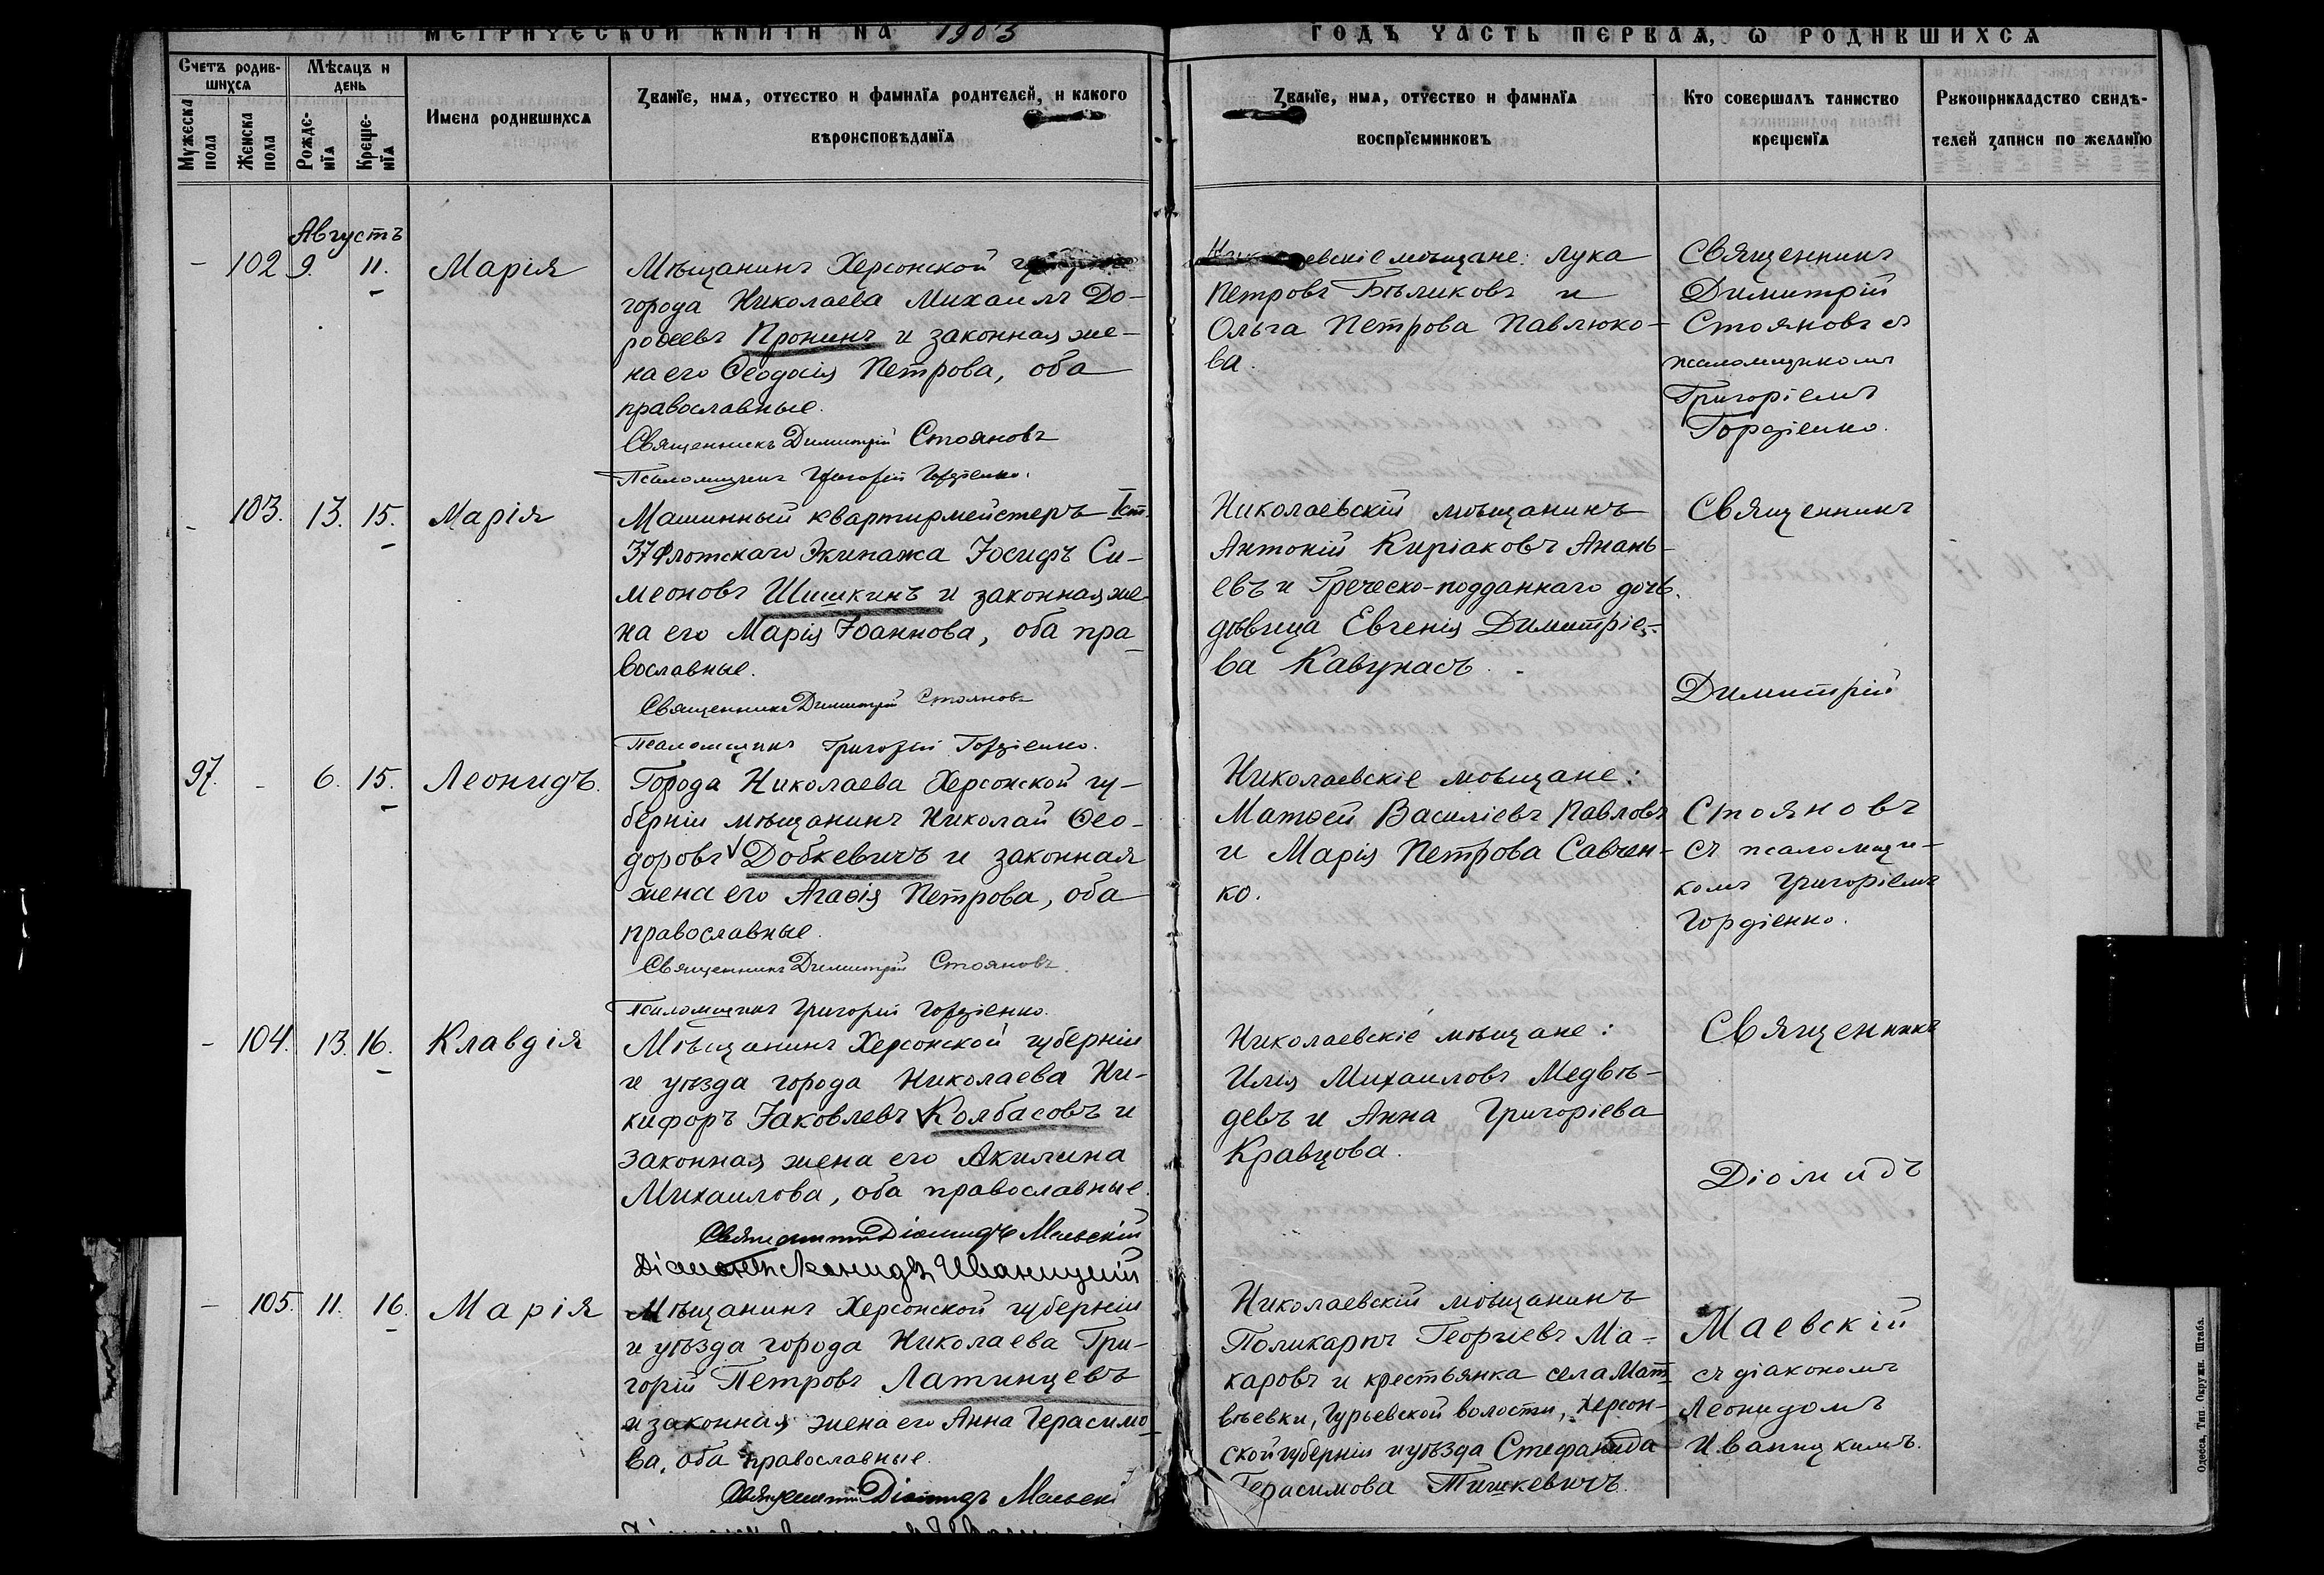 МЕТРИЧЕСКОЙ КНИГИ НА 1903
ГОДЪ ЧАСТЬ ПЕРВАЯ, Ѡ РОДИВШИХСЯ
Счетъ родив-
шихся
Мѣсяцъ и
день
Мужеска
пола
Женска
пола
Рожде-
нїя
Креще-
нїя
Имена родившихся
Званїе, имя, отчество и фамилїя родителей, и какого
вѣроисповѣданїя
Званїе, имя, отчество и фамилїя
воспрїемниковъ
Кто совершалъ таинство
крещенїя
Рукоприкладство свидѣ-
телей записи по желанїю
Августъ
- 102 9. 11. Марія
Мѣщанинъ Херсонской
города Николаева Михаилъ До-
роѳеевъ Пронинъ и законная же-
на его Ѳеодосія Петрова, оба
православные.
Священникъ Димитрій Стояновъ
Псаломщикъ Григорій Гордіенко.
евскіе мѣщане: Лука
Петровъ Бѣликовъ и
Ольга Петрова Павлюко-
ва.
Священникъ
Димитрій
Стояновъ съ
псаломщикомъ
Григоріемъ
Гордіенко.
- 103. 13. 15. Марія
Машинный квартирмейстеръ I ст.
37 Флотскаго Экипажа Іосифъ Си-
меоновъ Шишкинъ и законная же-
на его Марія Іоаннова, оба пра-
вославные.
Священникъ Димитрій Стояновъ
Псаломщикъ Григорій Гордіенко.
Николаевскій мѣщанинъ
Антоній Киріаковъ Анань-
евъ и Греческо-подданнаго дочь
дѣвица Евгенія Димитріе-
ва Кавунасъ.
Священникъ
Димитрій
97. - 6. 15. Леонидъ.
Города Николаева Херсонской гу-
берніи мѣщанинъ Николай Ѳео-
доровъ Добкевичъ и законная
жена его Агаѳія Петрова, оба
православные.
Священникъ Димитрій Стояновъ.
Псаломщикъ Григорій Гордіенко.
Николаевскіе мѣщане:
Матѳей Василіевъ Павловъ
и Марія Петрова Савчен-
ко.
Стояновъ
съ псаломщи-
комъ Григоріемъ
Гордіенко.
- 104. 13. 16. Клавдія
Мѣщанинъ Херсонской губерніи
и уѣзда города Николаева Ни-
кифоръ Іаковлевъ Колбасовъ и
законная жена его Акилина
Михаилова, оба православные.
Священникъ Діомидъ Маевскій
Діаконъ Леонидъ Иваницкій
Николаевскіе мѣщане:
Илія Михаиловъ Медвѣ-
девъ и Анна Григоріева
Кравцова.
Священникъ
Діомидъ
- 105. 11. 16. Марія
Мѣщанинъ Херсонской губерніи
и уѣзда города Николаева Гри-
горій Петровъ Латинцевъ
и законная жена его Анна Герасимо-
ва, оба православные.
Священникъ Діомидъ Маевскі
Николаевскій мѣщанинъ
Поликарпъ Георгіевъ Ма-
каровъ и крестьянка села Мат-
вѣевки, Гурьевской волости, Херсон-
ской губерніи и уѣзда Стефанида
Герасимова Тишкевичъ.
Маевскій
съ діакономъ
Леонидомъ
Иваницкимъ.
Одесса, Тип. Окружн. Штаба.